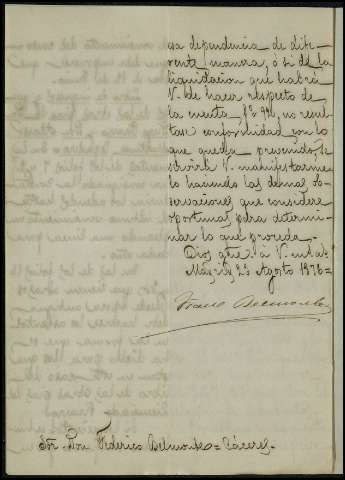 sa dependencia de dife-
rente manera, ó si de la
liquidacion que habrá
V. de hacer respecto de
la cuenta nº 99, no resul-
tase conformidad con lo
que queda prevenido, se
servirá V. manifestarme-
lo haciendo las demas ob-
servaciones que considere
oportunas para determi-
nar lo que proceda.
Dios gue. á V. m. as.
23 Agosto 1876=
Belmonte
Sor. Don Federico Belmonte= Cáceres=